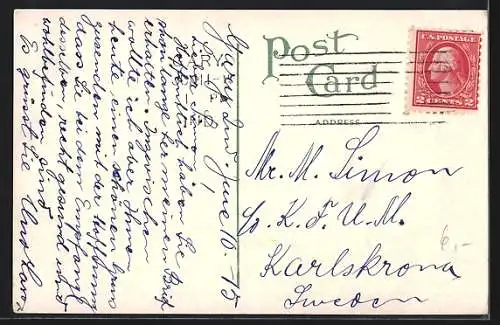 Post
Card
ADDRESS
U.S. POSTAGE
2 CENTS 2
Mr. M. Simon
c/o K. F. U. M.
Karlskrona
Sweden
6,-
June 10. -15
Hoffentlich haben Sie
schon lange her meinen Brief
erhalten. Inzwischen
wollte ich aber Ihnen
heute einen schönen Gruss
zusenden mit der Hoffnung
dass Sie bei dem Empfange
desselben, recht gesund und
wohlbefinden sind.
Es grüsst Sie